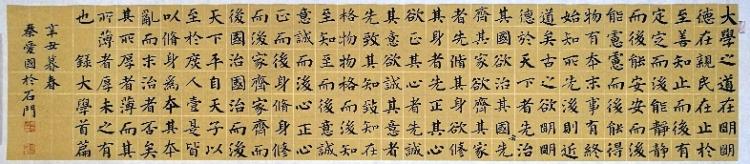 大學之道在明明
德在親民在止於
至善知止而後有
定定而後能靜靜
而後能安安而後
能慮慮而後能得
物有本末事有終
始知所先後則近
道矣古之欲明明
德於天下者先治
其國欲治其國者先
齊其家欲齊其家
者先修其身欲修
其身者先正其心
欲正其心者先誠
其意欲誠其意者
先致其知致知在
格物物格而後知
至知至而後意誠
意誠而後心正心
正而後身修身修
而後家齊家齊而
後國治國治而後
天下平自天子以
至於庶人壹是皆
以修身為本其本
亂而末治者否矣
其所厚者薄而其
所薄者厚未之有
也 錄大學首篇
辛丑暮春
秦愛國於石門